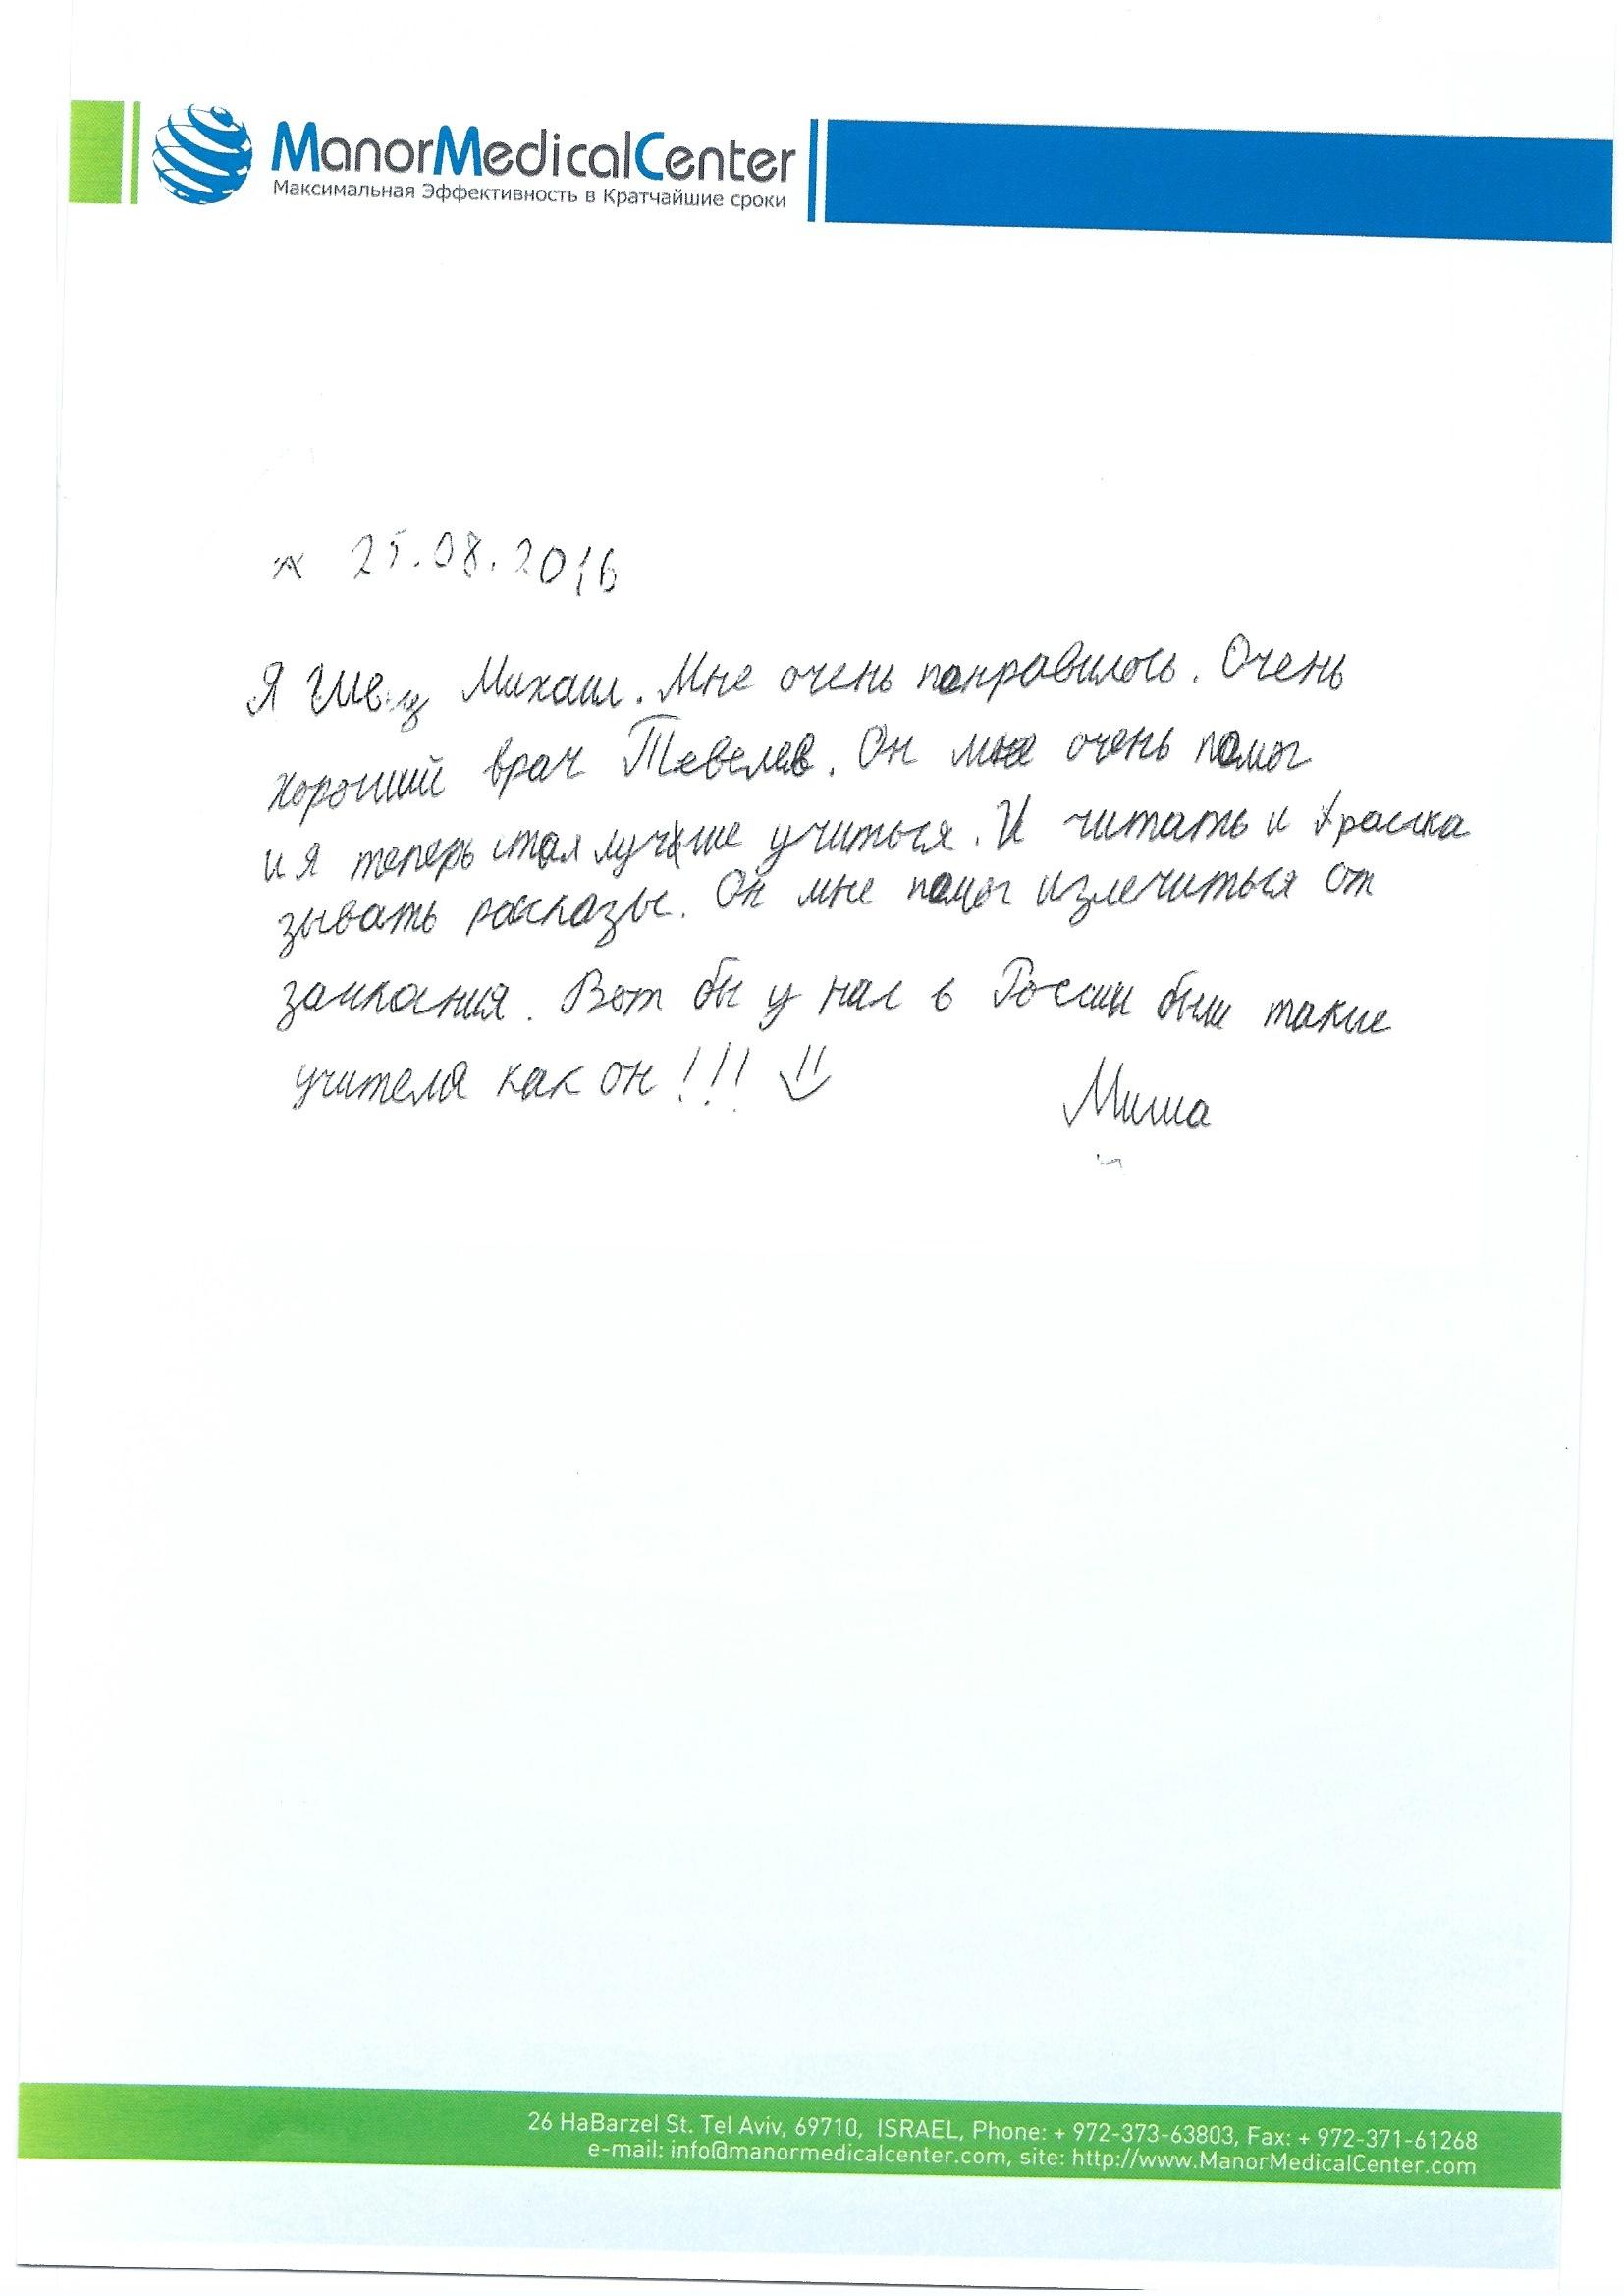 ManorMedicalCenter
Максимальная Эффективность в Кратчайшие сроки
25.08.2016
Я Михаил. Мне очень понравилось. Очень
хороший врач Тевелев. Он мне очень помог
и я теперь стал лучше учиться. И читать и расска
зывать рассказы. Он мне помог излечиться от
заикания. Вот бы у нас в России были такие
учителя как он!!!
Миша
26 HaBarzel St. Tel Aviv, 69710, ISRAEL, Phone: + 972-373-63803, Fax: + 972-371-61268
e-mail: info@manormedicalcenter.com, site: http://www.ManorMedicalCenter.com